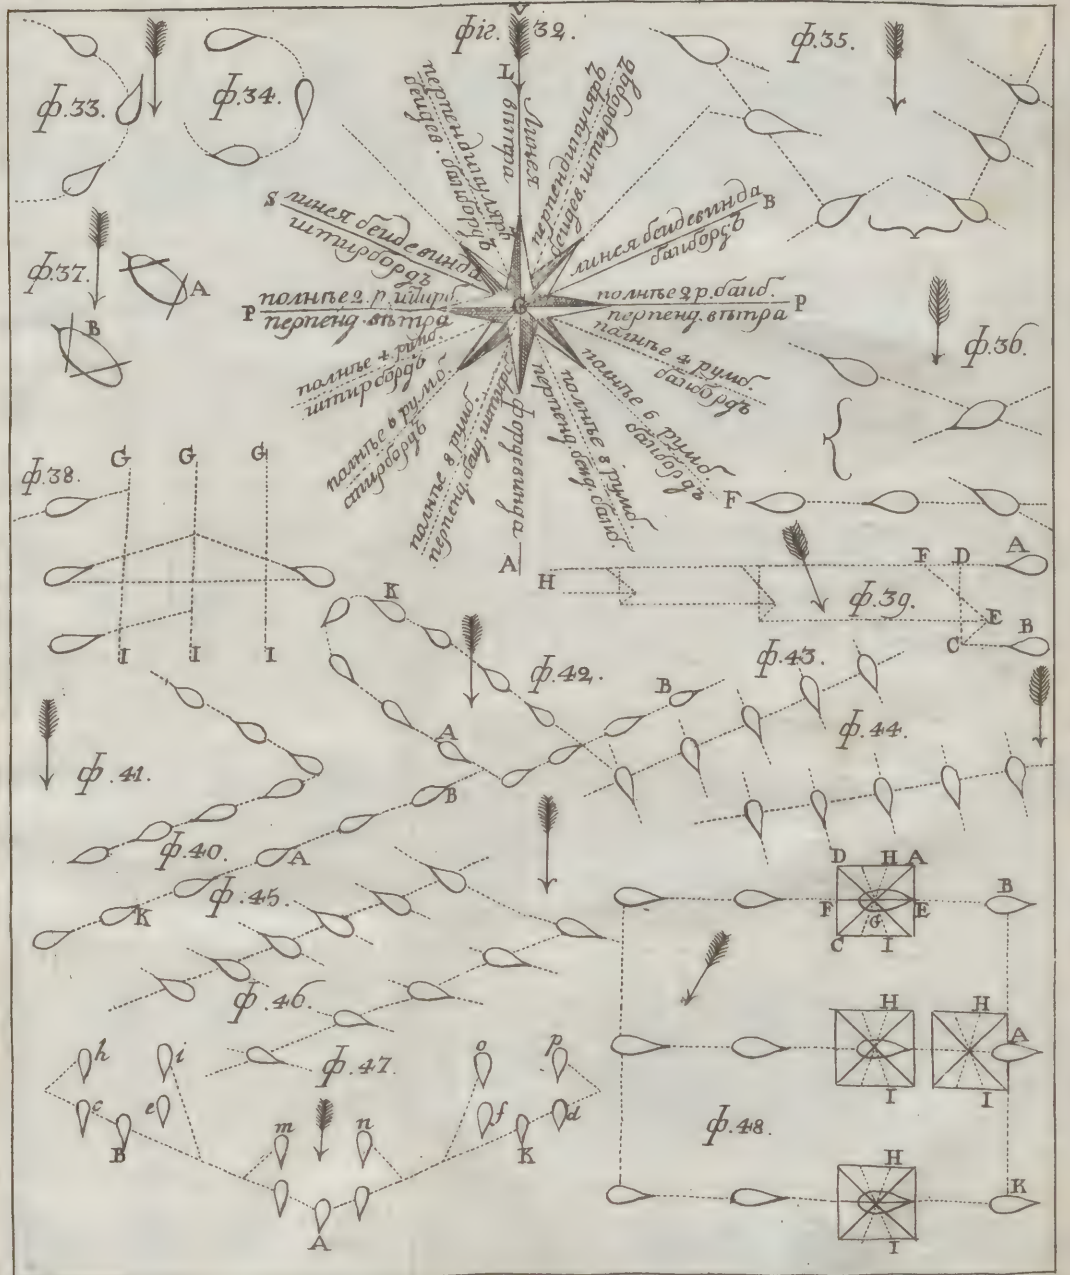 фіг. 32.
ф.33.
ф.34.
ф.35.
V
L
Линѣя
вѣтра
перпендикулярЪ
бейдев. бакбордЪ
перпендикулярЪ
бейдев. штирбордЪ
S линея бейдевинда
штирбордЪ
линея бейдевинда B
бакбордЪ
G
полнѣе 2. р. штирб.
P перпенд. вѣтра
полнѣе 2 р. бакб.
перпенд. вѣтра P
полнѣе 4 румб.
штирбордЪ
полнѣе 4 румб.
бакбордЪ
полнѣе 6 румб.
штирбордЪ
полнѣе 6 румб.
бакбордЪ
полнѣе 8 румб.
перпенд. бейд. штирб.
полнѣе 8 румб.
перпенд. бейд. бакб.
фордевинда
A
ф.37.
A
B
ф.36.
F
ф.38.
G G G
I I I
H F D A
ф.39.
E
C B
K
ф.42.
A
B
B
ф.43.
ф.44.
ф.41.
ф.40.
A
K
ф.45.
ф.46.
ф.47.
h i o p
c e f d
B m n K
A
D H A
B
F G E
C I
H H
A
I I
ф.48.
H
K
I